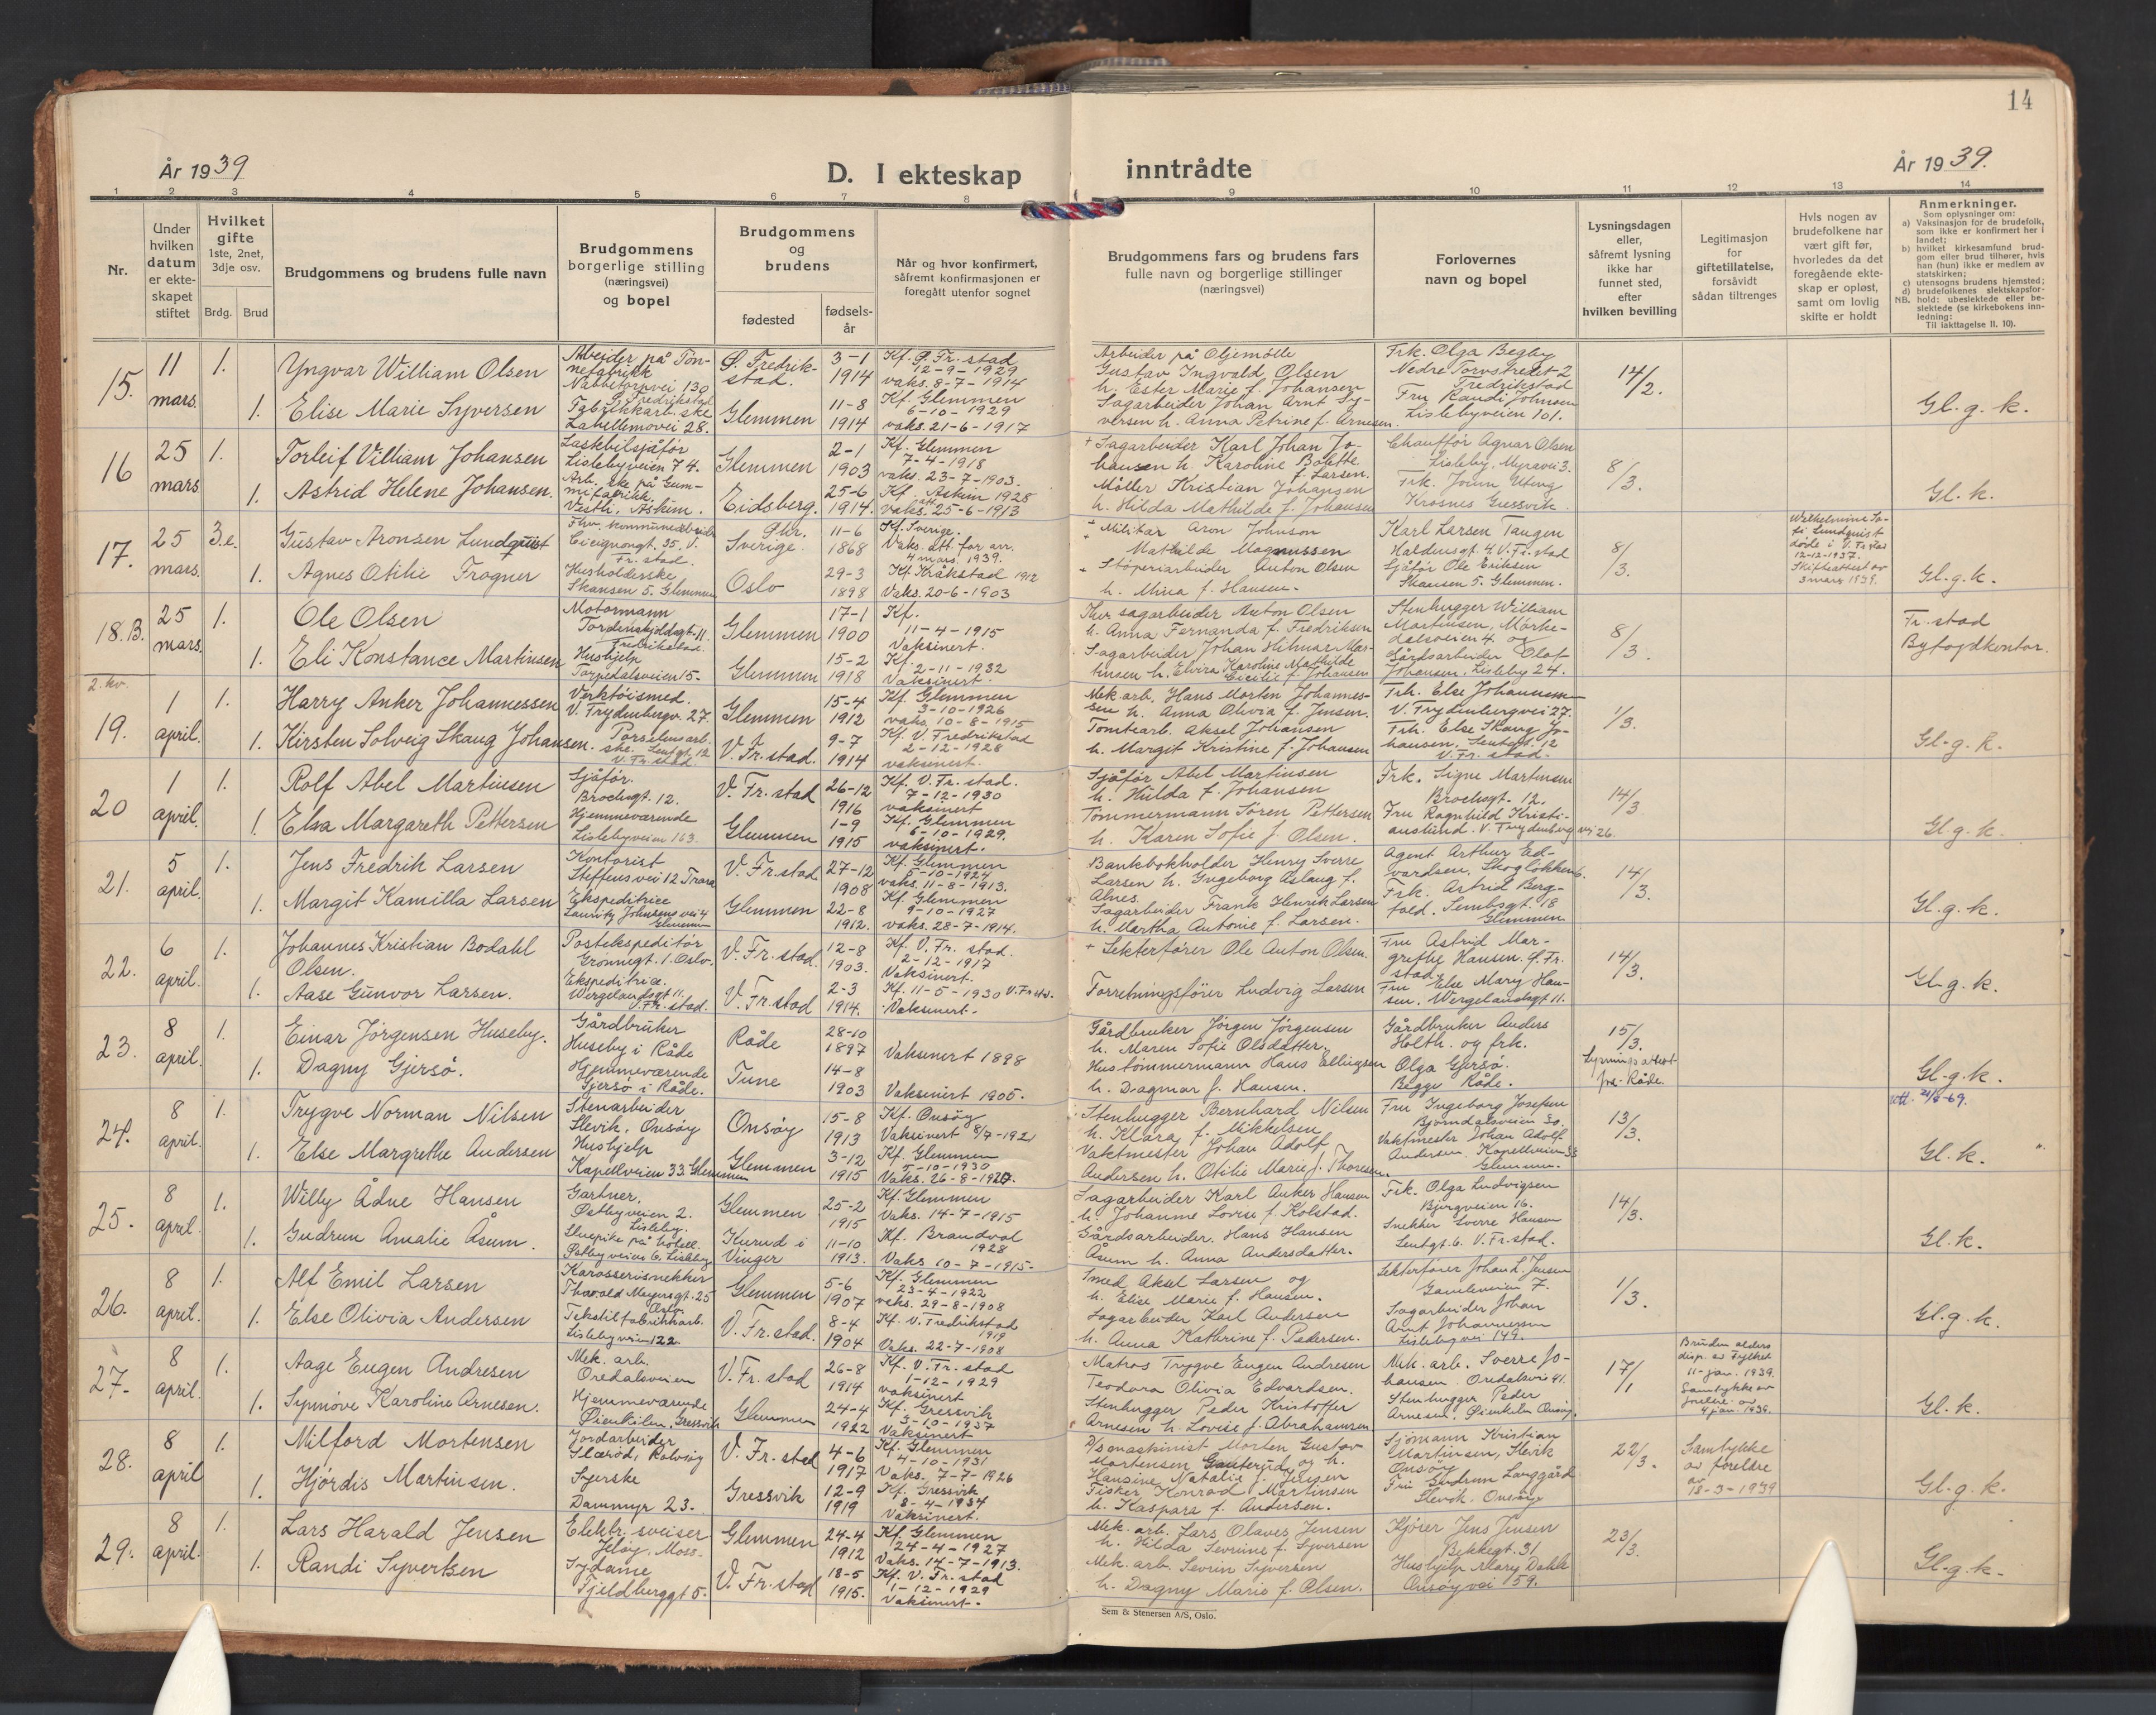 14
År 1939
D. I ekteskap inntrådte
År 1939.
1 2 3 4 5 6 7 8 9 10 11 12 13 14
Nr.
Under hvilken datum er ekteskapet stiftet
Hvilket gifte 1ste, 2net, 3dje osv.
Brdg. Brud
Brudgommens og brudens fulle navn
Brudgommens borgerlige stilling (næringsvei) og bopel
Brudgommens og brudens
fødested
fødselsår
Når og hvor konfirmert, såfremt konfirmasjonen er foregått utenfor sognet
Brudgommens fars og brudens fars fulle navn og borgerlige stillinger (næringsvei)
Forlovernes navn og bopel
Lysningsdagen eller, såfremt lysning ikke har funnet sted, efter hvilken bevilling
Legitimasjon for giftetillatelse, forsåvidt sådan tiltrenges
Hvis nogen av brudefolkene har vært gift før, hvorledes da det foregående ekteskap er opløst, samt om lovlig skifte er holdt
Anmerkninger.
Som oplysninger om:
a) Vaksinasjon for de brudefolk, som ikke er konfirmert her i landet;
b) hvilket kirkesamfund brudgom eller brud tilhører, hvis han (hun) ikke er medlem av statskirken;
c) utensogns brudens hjemsted;
d) brudefolkenes slektskapsforhold: ubeslektede eller beslektede (se kirkebokens innledning:
NB. Til iakttagelse II. 10).
15. 11 mars. 1. Yngvar William Olsen
Arbeider på Tønnefabrikk Nabbetorpvei 130 Ø. Fredrikstad
Ø. Fredrikstad. 3-1 1914
Kf. Ø. Fr.stad 12-9-1929 vaks. 8-7-1914
Arbeider på Oljemølle Gustav Ingvald Olsen h. Ester Marie f. Johansen
Frk. Olga Begby Nedre Torvstredet 2 Fredrikstad
14/2.
1. Elise Marie Syversen
Fabrikkarb.ske Labellemovei 28.
Glemmen 11-8 1914
Kf. Glemmen 6-10-1929 vaks. 21-6-1917
Sagarbeider Johan Arnt Syversen h. Anna Petrine f. Arnesen.
Fru Randi Johnsen Lislebyveien 101.
Gl.g.k.
16 25 mars 1. Torleif Villiam Johansen
Lastebilsjåfør Lislebyveien 74.
Glemmen 2-1 1903
Kf. Glemmen 7-4-1918 vaks. 23-7-1903.
+ Sagarbeider Karl Johan Johansen h. Karoline Bolette f. Larsen.
Chauffør Agnar Olsen Lisleby, Myravei 3.
8/3.
1. Astrid Helene Johansen.
Arb.ske på Gummifabrikk. Vestli, Askim.
Eidsberg. 25-6 1914.
Kf. Askim 1928 vaks. 25-6-1913
Møller Kristian Johansen h. Hilda Mathilde f. Johansen
Krosnes Gressvik.
Gl.k.
17. 25 mars. 3.e. Gustav Aronsen Lundquist
Cicignongt. 35. V. Fr.stad.
Sverige. 11-6 1868
Kf. Sverige. Vaks. att. for arr. 4 mars 1939.
+ Militær Aron Johnson Mathilde Magnussen
Karl Larsen Taugen Haldensgt. 4. V. Fr.stad
8/3.
Wilhelmine Sofi Lundquist døde i V. Fr.stad 12-12-1937. Skifteattest av 3 mars 1939.
1. Agnes Otilie Frogner
Husholderske Skansen 5. Glemmen
Oslo 29-3 1898
Kf. Kråkstad 1912 Vaks. 20-6-1903
+ Støperiarbeider Anton Olsen h. Mina f. Hansen.
Sjåfør Ole Eriksen Skansen 5. Glemmen.
Gl.g.k.
18.B. 25 mars. 1. Ole Olsen
Motormann Tordenskjoldsgt. 11. Fredrikstad.
Glemmen 17-1 1900
Kf. 11-4-1915 Vaksinert.
Fhv. sagarbeider Anton Olsen h. Anna Fernanda f. Fredriksen
Stenhugger William Martinsen, Mørkedalsveien 4. og
8/3.
1. Eli Konstance Martinsen
Hushjelp Torpedalsveien 15.
Glemmen 15-2 1918
Kf. 2-11-1932 Vaksinert.
Sagarbeider Johan Hilmar Martinsen h. Elvira Karoline Mathilde Cecilie f. Johansen
Gårdsarbeider Olaf Johansen, Lisleby 24.
Fr.stad Byfogdkontor.
2. kv.
19. 1 april. 1. Harry Anker Johannessen
Verktøismed. V. Frydenbergv. 27.
Glemmen 15-4 1912
Kf. Glemmen 3-10-1926 vaks. 10-8-1915
Mek. arb. Hans Morten Johannessen h. Anna Olivia f. Jensen.
Frk. Else Johannessen V. Frydenbergvei 27.
1/3.
1. Kirsten Solveig Skaug Johansen.
Porselensarb.ske. Lentgt. 12 V. Fr.stad
V. Fr.stad. 9-7 1914
Kf. V. Fredrikstad 2-12-1928 vaksinert.
Tomtearb. Aksel Johansen h. Margit Kristine f. Johansen
Frk. Else Skaug Johansen, Lentgt. 12 V. Fr.stad.
Gl.g.k.
20 1 april. 1. Rolf Abel Martinsen
Sjåfør. Brochsgt. 12.
V. Fr.stad 26-12 1916
Kf. V. Fr.stad. 7-12-1930 vaksinert
Sjåfør Abel Martinsen h. Hulda f. Johansen
Frk. Signe Martinsen Brochsgt. 12.
14/3
1. Elsa Margareth Pettersen
Hjemmeværende Lislebyveien 163.
Glemmen 1-9 1915
Kf. Glemmen 6-10-1929. vaksinert.
Tømmermann Søren Pettersen h. Karen Sofie f. Olsen.
Fru Ragnhild Kristianslund. V. Frydenbergvei 26.
Gl.g.k.
21. 5 april. 1. Jens Fredrik Larsen
Kontorist Steffensvei 12 Trara
V. Fr.stad 27-12 1908
Kf. Glemmen 5-10-1924 vaks. 11-8-1913.
Bankbokholder Henry Sverre Larsen h. Ingeborg Aslaug f. Alnes.
Agent Arthur Edvardsen, Skogløkken 6.
14/3.
1. Margit Kamilla Larsen
Ekspeditrice Lauritz Johnsens vei 4 Glemmen
Glemmen 22-8 1912.
Kf. Glemmen 9-10-1927 vaks. 28-7-1914.
Sagarbeider Frank Henrik Larsen h. Martha Antonie f. Larsen.
Frk. Astrid Bergfald. Sembsgt. 18 Glemmen
Gl.g.k.
22. 6 april. 1. Johannes Kristian Bodahl Olsen.
Postekspeditør Grønnegt. 1. Oslo.
V. Fr.stad. 12-8 1903.
Kf. V. Fr.stad. 2-12-1917 Vaksinert.
+ Lekterfører Ole Anton Olsen.
Fru Astrid Margrethe Hansen. Ø. Fr.stad.
14/3.
1. Aase Gunvor Larsen.
Ekspeditrice. Wergelandsgt 11. V. Fr.stad.
V. Fr.stad 2-3 1914.
Kf. 11-5-1930 V. Fr.std. Vaksinert.
Forretningsfører Ludvig Larsen
Fru Else Mary Hansen. Wergelandsgt 11.
Gl.g.k.
23. 8 april. 1. Einar Jørgensen Huseby.
Gårdbruker Huseby i Råde
Råde 28-10 1897
Vaksinert 1898
Gårdbruker Jørgen Jørgensen h. Maren Sofie Olsdatter.
Gårdbruker Anders Holth. og frk.
15/3. Lysningsattest fra Råde.
1. Dagny Gjersø.
Hjemmeværende Gjersø i Råde.
Tune 14-8 1903
Vaksinert 1905.
Hustømmermann Hans Ellingsen h. Dagmar f. Hansen.
Olga Gjersø. Begge Råde.
Gl.g.k.
24. 8 april. 1. Trygve Norman Nilsen
Stenarbeider Slevik, Onsøy
Onsøy 15-8 1913
Kf. Onsøy Vaksinert 8/7-1921
Stenhugger Bernhard Nilsen h. Klara f. Mikkelsen
Fru Ingeborg Josefsen Bjørndalsveien 30.
13/3.
1. Else Margrethe Andersen
Hushjelp Kapellveien 33. Glemmen
Glemmen 3-12 1915
Kf. Glemmen 5-10-1930 Vaks. 26-8-1920.
Vaktmester Johan Adolf Andersen h. Otilie Marie f. Thoresen.
Vaktmester Johan Adolf Andersen. Kapellveien 33 Glemmen.
Gl.k.
25. 8 april. 1. Willy Ådne Hansen
Gartner. Østbyveien 2. Lisleby.
Glemmen 25-2 1915
Kf. Glemmen Vaks. 14-7-1915
Sagarbeider Karl Anker Hansen h. Johanne Lovise f. Kolstad.
Frk. Olga Ludvigsen Bjergveien 16.
14/3.
1. Gudrun Amalie Åsum.
Stuepike på hotell. Østbyveien 6, Lisleby
Kurud i Vinger 11-10 1913.
Kf. Brandval 1928 Vaks 10-7-1915.
Gårdsarbeider. Hans Hansen Åsum h. Anna Andersdatter.
Snekker Sverre Hansen Lentgt. 6. V. Fr.stad.
Gl.k.
26. 8 april. 1. Alf Emil Larsen
Karosserisnekker Thorvald Meyersgt. 25 Oslo.
Glemmen 5-6 1907
Kf. Glemmen 23-4-1922 vaks. 29-8-1908
Smed Aksel Larsen og h. Elise Marie f. Hansen.
Lekterfører Johan L. Jensen Gamleveien 7.
1/3.
1. Else Olivia Andersen
Tekstilfabrikkarb. Lislebyveien 122.
V. Fr.stad. 8-4 1904
Kf. V. Fredrikstad 1919 Vaks. 22-7-1908
Sagarbeider Karl Andersen h. Anna Kathrine f. Pedersen.
Sagarbeider Johan Arnt Johannessen Lislebyvei 149.
Gl.g.k.
27. 8 april. 1. Aage Eugen Andresen
Mek. arb. Oredalsveien
V. Fr.stad 26-8 1914
Kf. V. Fr.stad 1-12-1929 vaksinert
Matros Trygve Eugen Andresen Teodora Olivia Edvardsen.
Mek. arb. Sverre Johansen. Oredalsvei 41.
17/1
Bruden alders disp. av Fylket 11-jan. 1939. Samtykke av foreldre av 4 jan. 1939.
1. Synnøve Karoline Arnesen.
Hjemmeværende Øienkilen, Gressvik
Glemmen 24-4 1922
Kf. Gressvik 3-10-1937 Vaksinert
Stenhugger Peder Kristoffer Arnesen h. Lovise f. Abrahamsen
Stenhugger Peder Arnesen, Øienkilen Onsøy.
Gl.k.
28. 8 april 1. Milford Mortensen
Jordarbeider Slærød, Rolvsøy
V. Fr.stad 4-6 1917
Kf. Glemmen 4-10-1931 Vaks. 7-7-1926
D/smaskinist Morten Gustav Mortensen Gauterud og h. Hansine Natalie f. Jensen
Sjømann Kristian Martinsen, Slevik Onsøy
22/3.
Samtykke av foreldre av 18-3-1939
1. Hjørdis Martinsen.
Syerske Dammyr 23.
Gressvik 12-9 1919
Kf. Gressvik 8-4-1934 Vaksinert.
Fisker Konrad Martinsen h. Kaspara f. Andersen.
Fru Gudrun Langgård Slevik. Onsøy
Gl.g.k.
29. 8 april. 1. Lars Harald Jensen
Elektr. sveiser Jeløy, Moss.
Glemmen 24-4 1912
Kf. Glemmen 24-4-1927 Vaks. 14-7-1913.
Mek. arb. Lars Olaves Jensen h. Hilda Sevrine f. Syversen
Kjører Jens Jensen Bekkegt. 31
23/3.
1. Randi Syvertsen
Sydame Fjeldberggt 5.
V. Fr.stad 18-5 1915.
Kf. V. Fr.stad 1-12-1929 Vaksinert.
Mek. arb. Sevrin Syversen h. Dagny Marie f. Olsen.
Hushjelp Mary Dahle Onsøyvei 59.
Gl.g.k.
Sem & Stenersen A/S, Oslo.